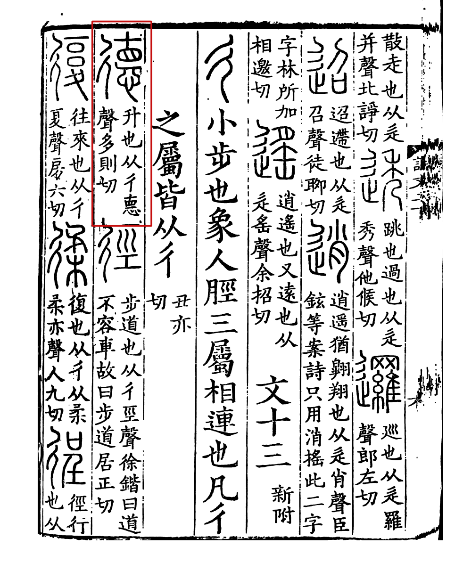 散走也从辵
并聲北諍切
跳也過也从辵
秀聲他候切
邏
巡也从辵羅
聲郎左切
迢
迢遰也从辵
召聲徒聊切
逍
逍遥猶翺翔也从辵肖聲臣
鉉等案詩只用消搖此二字
字林所加
相邀切
遥
逍遙也又遠也从
辵䍃聲余招切
文十三
新附
彳
小步也象人脛三屬相連也凡彳
之屬皆从彳
丑亦
切
德
升也从彳悳
聲多則切
徑
步道也从彳巠聲徐鍇曰道
不容車故曰步道居正切
復
往來也从彳
复聲房六切
復也从彳从柔
柔亦聲人九切
徑行
也从